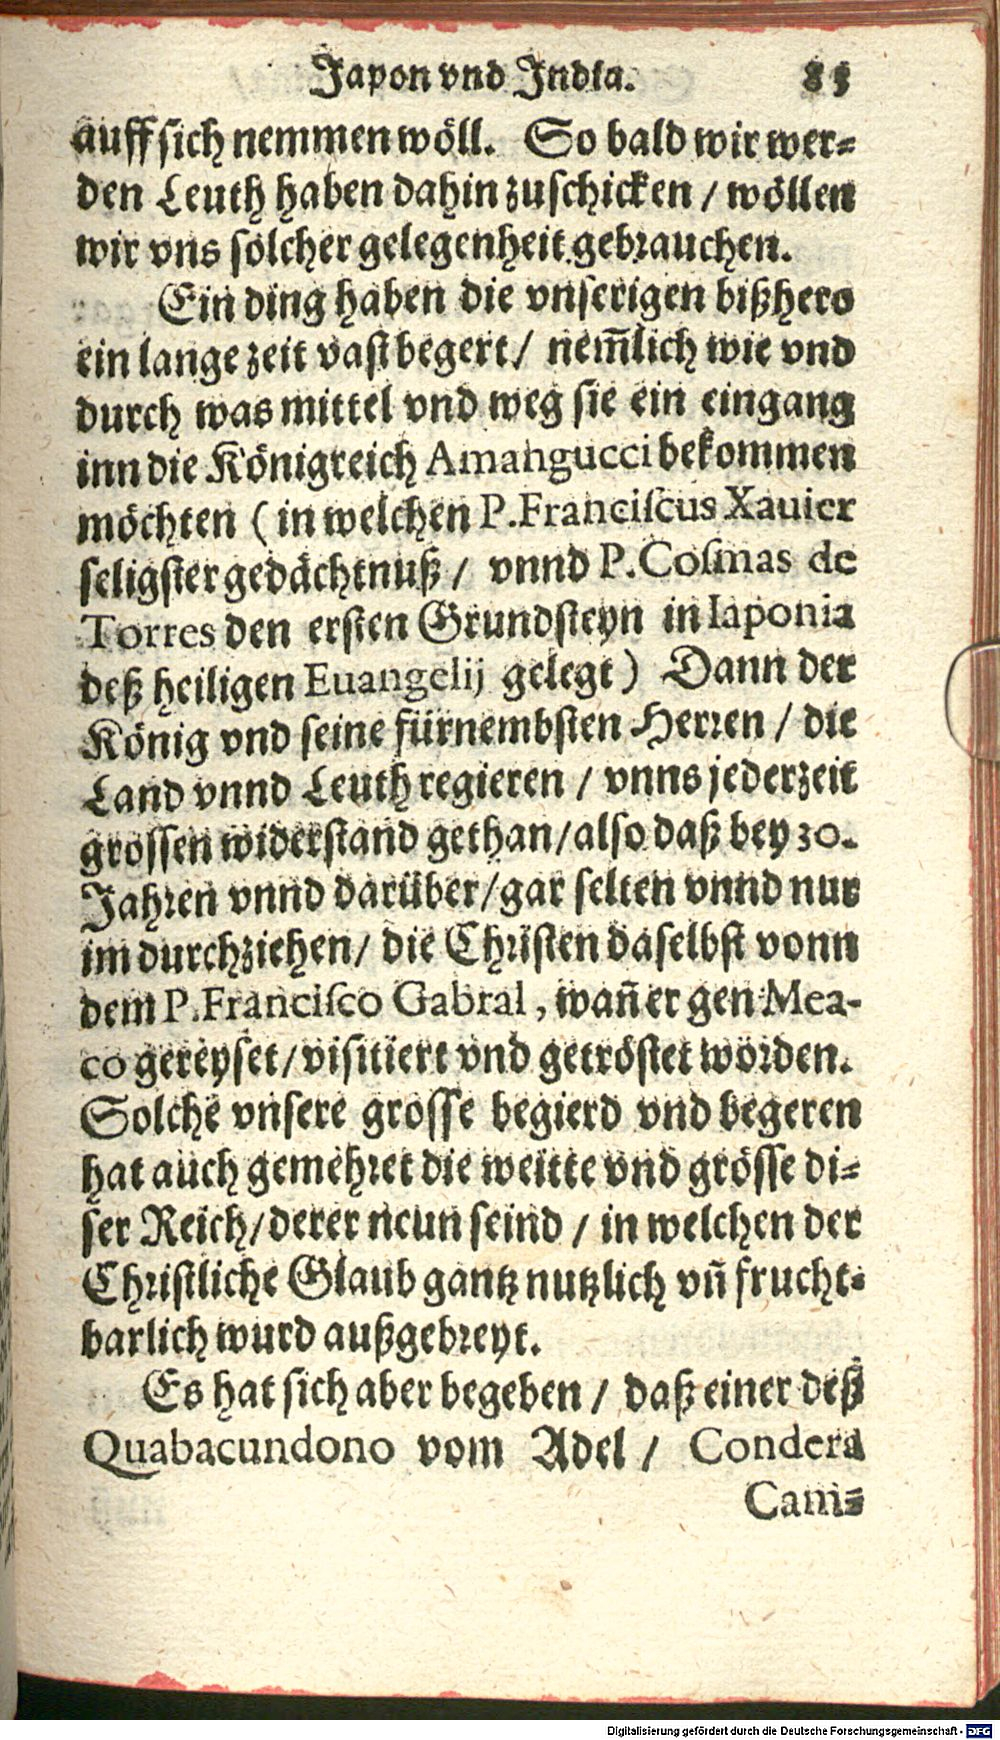 Japon vnd India. 85
auff sich nemmen wöll. So bald wir wer-
den Leuth haben dahin zuschicken / wöllen
wir vns solcher gelegenheit gebrauchen.
Ein ding haben die vnserigen bißhero
ein lange zeit vast begert / nem̃lich wie vnd
durch was mittel vnd weg sie ein eingang
inn die Königreich Amangucci bekommen
möchten ( in welchen P. Franciſcus Xauier
seligster gedächtnuß / vnnd P. Coſmas de
Torres den ersten Grundsteyn in Iaponia
deß heiligen Euangelij gelegt ) Dann der
König vnd seine fürnembsten Herren / die
Land vnnd Leuth regieren / vnns jederzeit
grossen widerstand gethan / also daß bey 30.
Jahren vnnd darüber / gar selten vnnd nur
im durchziehen / die Christen daselbst vonn
dem P. Franciſco Gabral, wañ er gen Mea-
co gereyset / visitiert vnd getröstet worden.
Solche vnsere grosse begierd vnd begeren
hat auch gemehret die weitte vnd grösse di-
ser Reich / derer neun seind / in welchen der
Christliche Glaub gantz nutzlich vñ frucht-
barlich wurd außgebreyt.
Es hat sich aber begeben / daß einer deß
Quabacundono vom Adel / Condera
Cami-
Digitalisierung gefördert durch die Deutsche Forschungsgemeinschaft - DFG